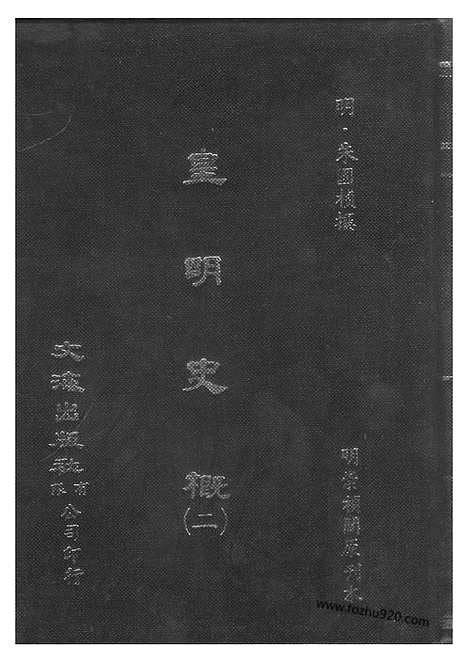 明·朱國楨撰
明崇禎間原刊本
皇明史概
(二)
文海出版社有限公司印行
www.fozhu920.com